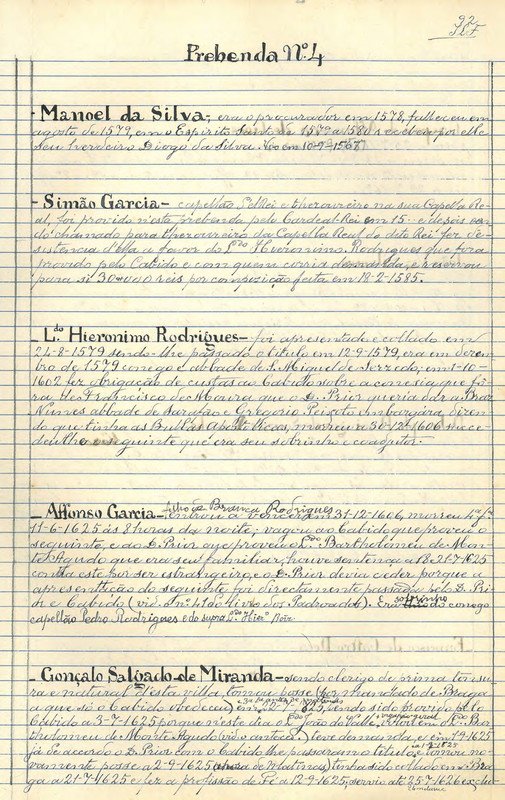 92
Prebenda Nº4
- Manoel da Silva - era o procurador em 1578, falleceu em
agosto de 1579, em o Espirito Santo de 1579 a 1580 recebeu por elle
seu herdeiro Diogo da Silva. em 10-9-1567
- Simão Garcia - capellão d'El Rei e thezoureiro na sua Capella Re-
al, foi provido n'esta prebenda pelo Cardeal-Rei em 15 e depois sen-
do chamado para thezoureiro da Capella Real do dito Rei fez de-
sistencia d'ella a favor do Ldo Hieronimo Rodrigues que fora
provido pelo Cabido e com quem corria demanda, e reservou
para si 30000 reis por composição feita em 18-2-1585.
- Ldo Hieronimo Rodrigues - foi apresentado e collado em
24-8-1579 sendo-lhe passado o titulo em 12-9-1579, era em dezem-
bro de 1579 conego e abbade de S. Miguel de Serzedo, em 1-10-
1602 fez obrigação de custas ao Cabido sobre a conesia que fô-
ra de Francisco de Moura que o D. Prior queria dar a Braz
Nunes abbade de e Gregorio Peixoto embargára, dizen-
do que tinha as Bullas morreu a 30-12-1606 succe-
deu-lhe o seguinte que era seu sobrinho e coadjutor.
- Affonso Garcia - filho de Branca Rodrigues
entrou a vencer em 31-12-1606, morreu 4ª fª
11-6-1625 ás 8 horas da noite; vagou ao Cabido que proveu o
seguinte, e ao D. Prior que proveu o Ldo Bartholomeu de Mon-
te Agudo que era seu familiar; houve sentença a 18-21-7-1625
contra este por ser estrangeiro, e o D. Prior devia ceder porque a
apresentação do seguinte foi directamente passada pelo D. Pri-
or e Cabido (vid. nº do livro dos Padroados). Era sobrinho do conego
capellão Pedro Rodrigues e do supra Ldo Hierº
- Gonçalo Salgado de Miranda - sendo clerigo de prima tonsu-
ra e natural d'esta villa, tomou posse (por mandado de Braga
a que só o Cabido obedeceu) em 22-7-1625, sendo sido provido pelo
Cabido a 3-7-1625 porque n'este dia o D. Prior
tholomeu de Monte Agudo (vid o antec.) teve demanda, e em 1-9-1625
já de accordo o D. Prior com o Cabido lhe passaram o titulo e tomou no-
vamente posse a 2-9-1625 (hora de Matinas), tinha sido collado em Bra-
ga a 21-7-1625 e fez a profissão de Fé a 12-9-1625, serviu até 25-7-1626